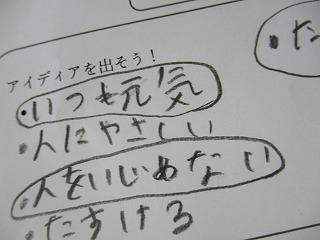 アイディアを出そう！
・いつも元気
・人にやさしい
・人をいじめない
・たすける
・た